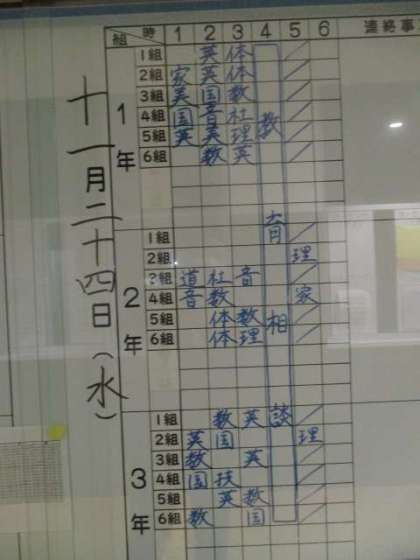 十一月二十四日(水)
組 時 1 2 3 4 5 6 連絡事
1年
1組 英 体
2組 家 英 体
3組 英 国 数
4組 国 音 社
5組 英 美 理
6組 数 英
教育相談
2年
1組
2組 理
3組 道 社 音
4組 音 数 家
5組 体 数
6組 体 理
3年
1組 数 英
2組 英 国 理
3組 数 英
4組 国 技
5組 英 数
6組 数 国